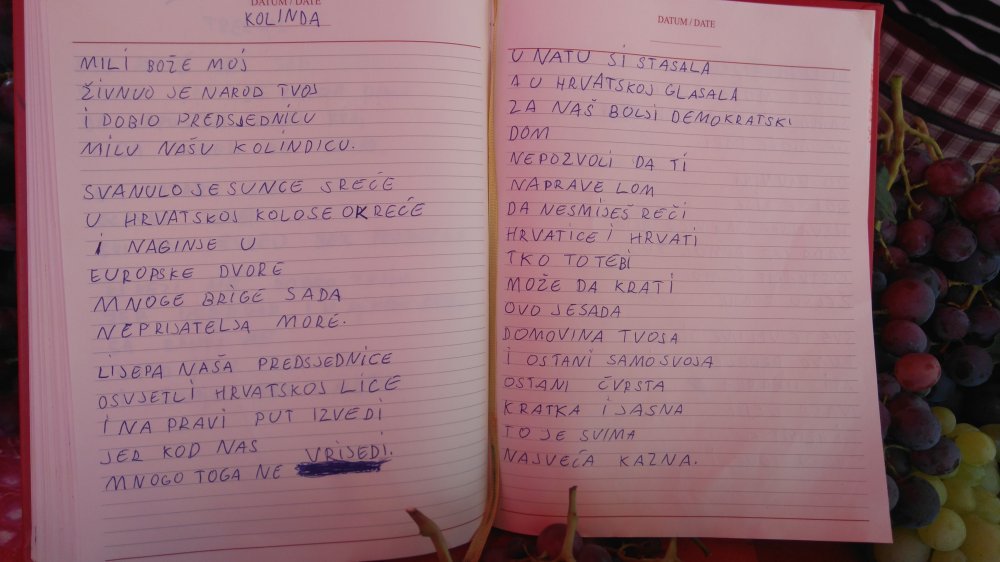 DATUM / DATE
KOLINDA
MILI BOŽE MOJ
ŽIVNUO JE NAROD TVOJ
I DOBIO PREDSJEDNICU
MILU NAŠU KOLINDICU.
SVANULO JE SUNCE SREĆE
U HRVATSKOJ KOLO SE OKREĆE
I NAGINJE U
EUROPSKE DVORE
MNOGE BRIGE SADA
NEPRIJATELJA MORE.
LIJEPA NAŠA PREDSJEDNICE
OSVJETLI HRVATSKOJ LICE
I NA PRAVI PUT IZVEDI
JER KOD NAS VRIJEDI.
MNOGO TOGA NE
DATUM / DATE
U NATU SI STASALA
A U HRVATSKOJ GLASALA
ZA NAŠ BOLJI DEMOKRATSKI
DOM
NEPOZVOLI DA TI
NAPRAVE LOM
DA NESMIJEŠ REČI
HRVATICE I HRVATI
TKO TO TEBI
MOŽE DA KRATI
OVO JE SADA
DOMOVINA TVOJA
I OSTANI SAMOSVOJA
OSTANI ČVRSTA
KRATKA I JASNA
TO JE SVIMA
NAJVEĆA KAZNA.